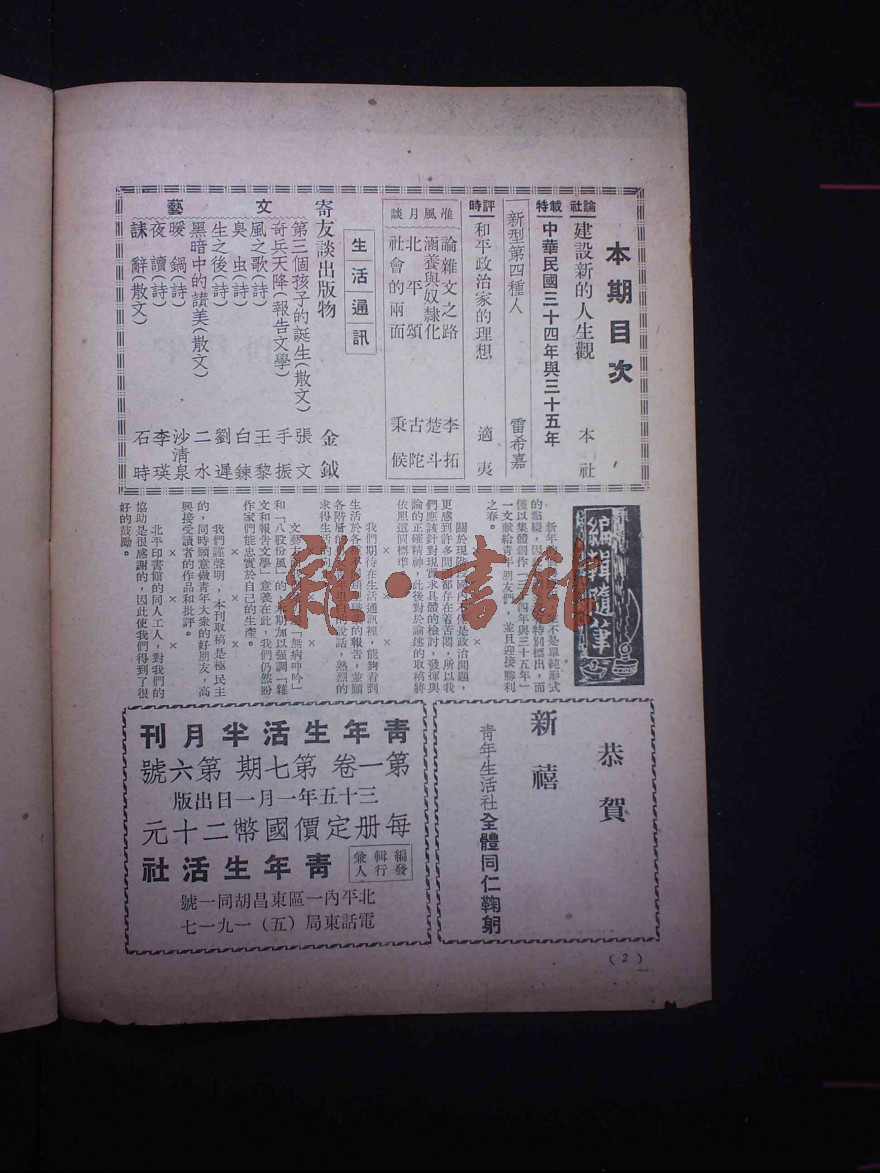 本期目次
社論
建設新的人生觀 本社
特載
中華民國三十四年與三十五年
新型第四種人 雷希嘉
時評
和平政治家的理想 適夷
淮風月談
論雜文之路 李拓
涵養與奴隸化 楚斗
北平頌 古陀
社會的兩面 秉候
生活通訊
寄友談出版物 金鉞
文藝
第三個孩子的誕生(散文) 張文
奇兵天降(報告文學) 手振
風之歌(詩) 王黎
臭虫(詩) 白鍊
生之後(詩) 劉遲
黑暗中的讃美(散文) 二水
暖鍋(詩) 沙清泉
夜讀(詩) 李瑛
誄辭(散文) 石時
編輯隨筆
不是單純形式
的點綴,因
特別標出,而
僅以集體創作「三十四年與三十五年」
一文獻給青年朋友們,並且迎接勝利
之春。
×
是政治問題,
更感到許多問題都存在着苦悶,所以我
們應該針對現實求具體的檢討,發揮與
論的正確精神,此後對於論述的取稿將
依照這個標準。
× × ×
我們期待在生活通訊裡,能夠看到
的報告,並願
說話,熱烈的
求得生活的
「無病呻吟」
和「八股份風」的
期加以强調「雜
文和報告文學」意義在此,我們仍然盼
作家們能忠實於自己的生產。
× × ×
我們謹聲明,本刊取稿是極民主
的,同時願意做青年大衆的好朋友,高
興接受讀者的作品和批評。
× × ×
北平印書館的同人工人,對我們的
協助是很感謝的,因此使我們得到了很
好的鼓勵。
恭賀
新禧
青年生活社全體同仁鞠躬
青年生活半月刊
第一卷 第七期 第六號
三十五年一月一日出版
每册定價國幣二十元
編輯兼
發行人
青年生活社
北平內一區東昌胡同一號
電話東局(五)一九一七
(2)
雜·書館